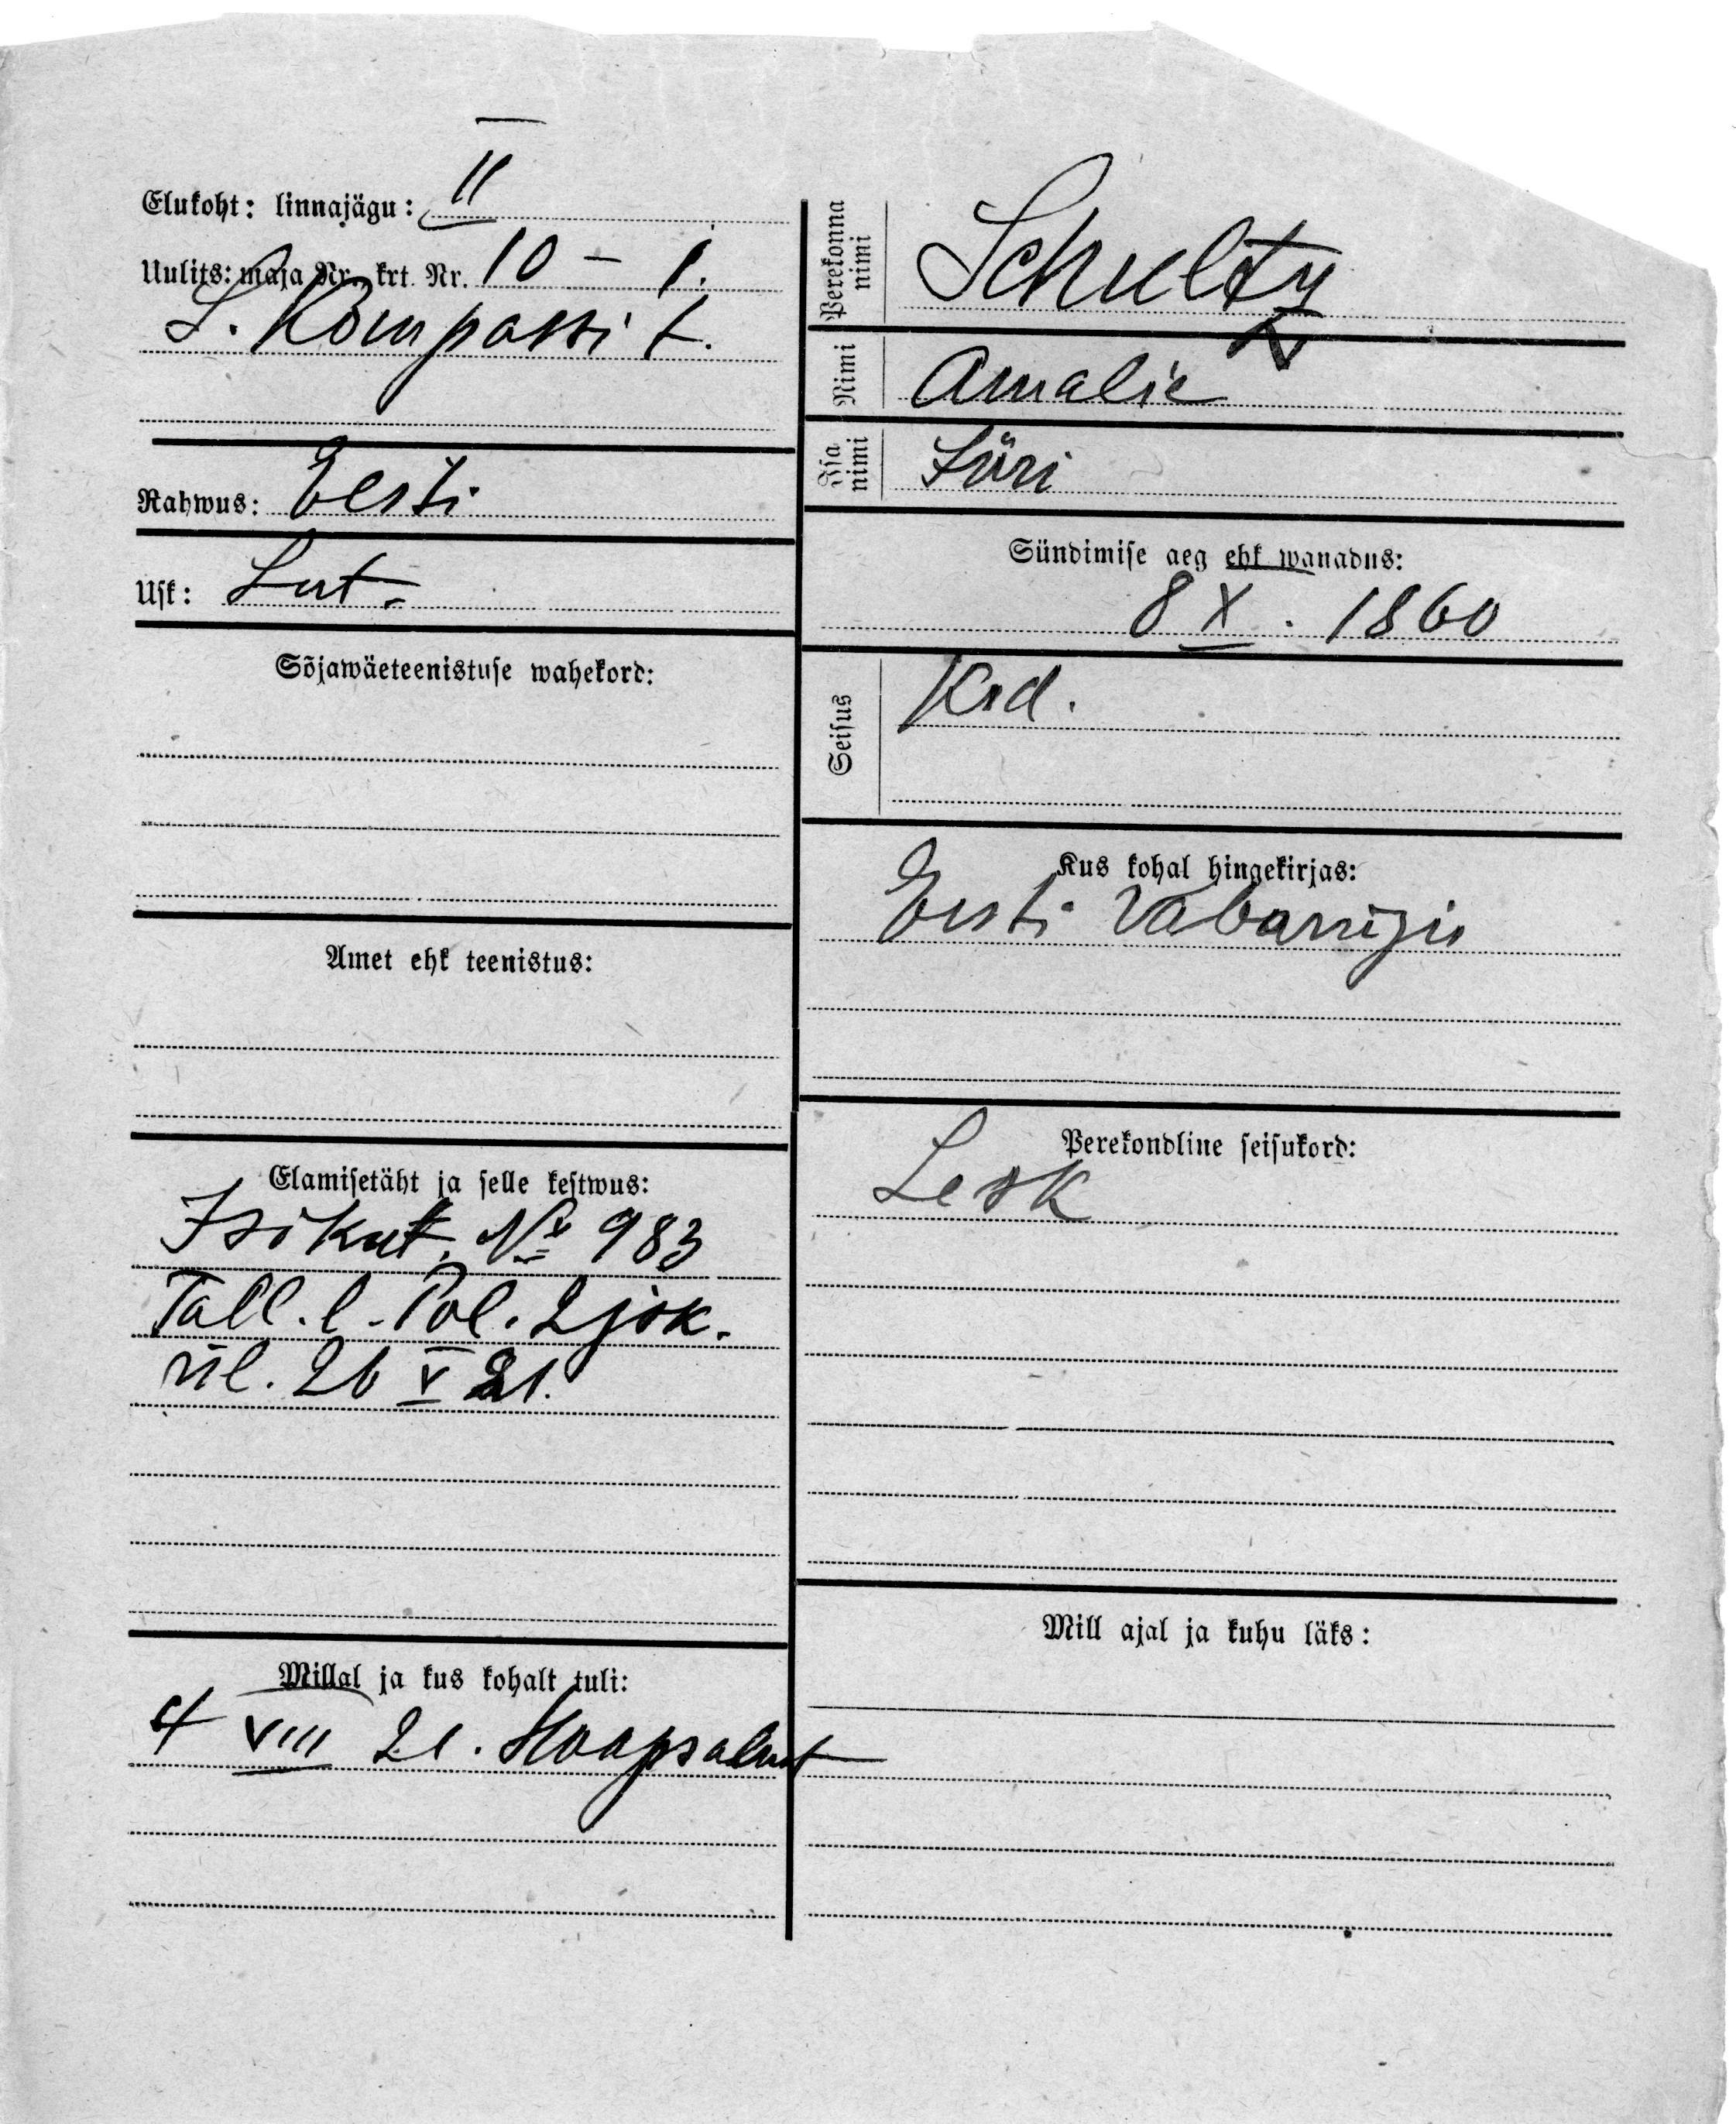 Elukoht: linnajägu: II
Uulits: maja Nr. krt. Nr. 10 – 1.
S. Kompassi t.
Rahwus: Eesti
Usk: Lut.
Sõjawäeteenistuse wahekord:
Amet ehk teenistus:
Elamisetäht ja selle kestwus:
Isikut. № 983
Tall. l. Pol. 2 jsk.
ül. 26 V 21.
Millal ja kus kohalt tuli:
4 VIII 21. Haapsalust
Perekonna nimi Schultz
Nimi Amalie
Isa nimi Jüri
Sündimise aeg ehk wanadus:
8 X. 1860
Seisus Kod.
Kus kohal hingekirjas:
Eesti Vabariigis
Perekondline seisukord:
Lesk
Mill ajal ja kuhu läks: